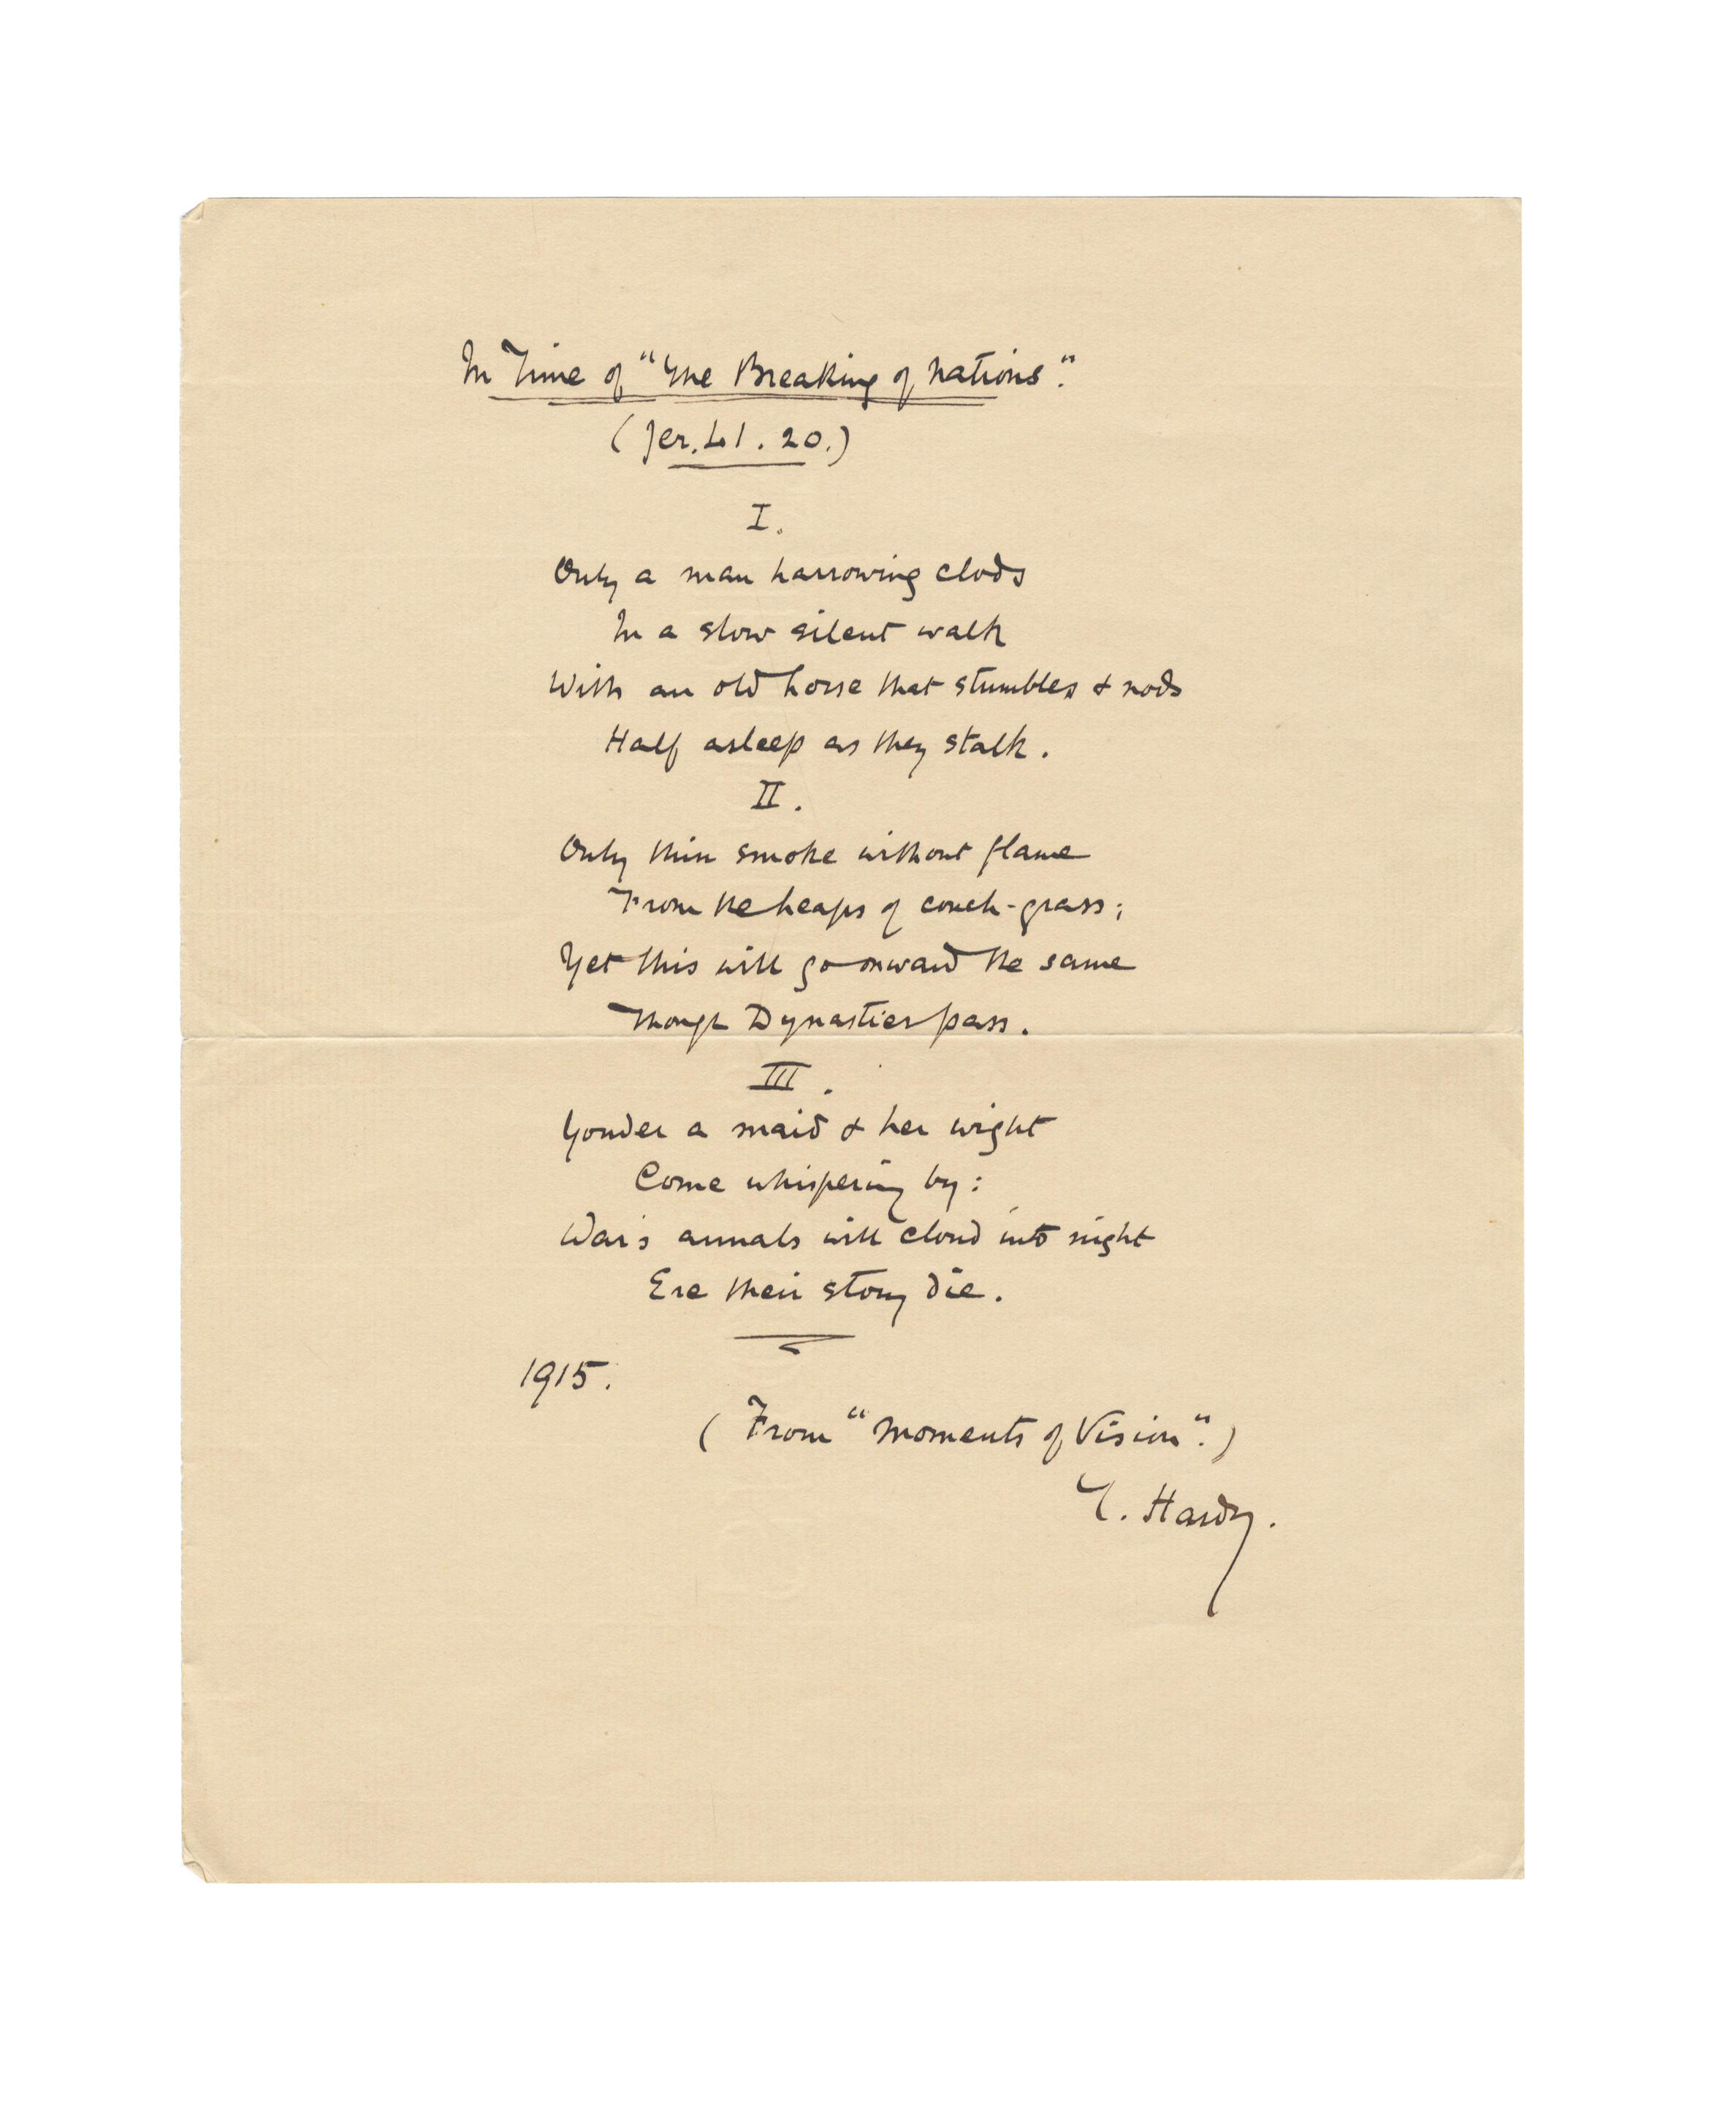 In Time of "The Breaking of Nations."
(Jer. LI. 20.)
I.
Only a man harrowing clods
In a slow silent walk
With an old horse that stumbles & nods
Half asleep as they stalk.
II.
Only thin smoke without flame
From the heaps of couch-grass;
Yet this will go onward the same
Though Dynasties pass.
III.
Yonder a maid & her wight
Come whispering by:
War's annals will cloud into night
Ere their story die.
1915.
(From "Moments of Vision".)
T. Hardy.